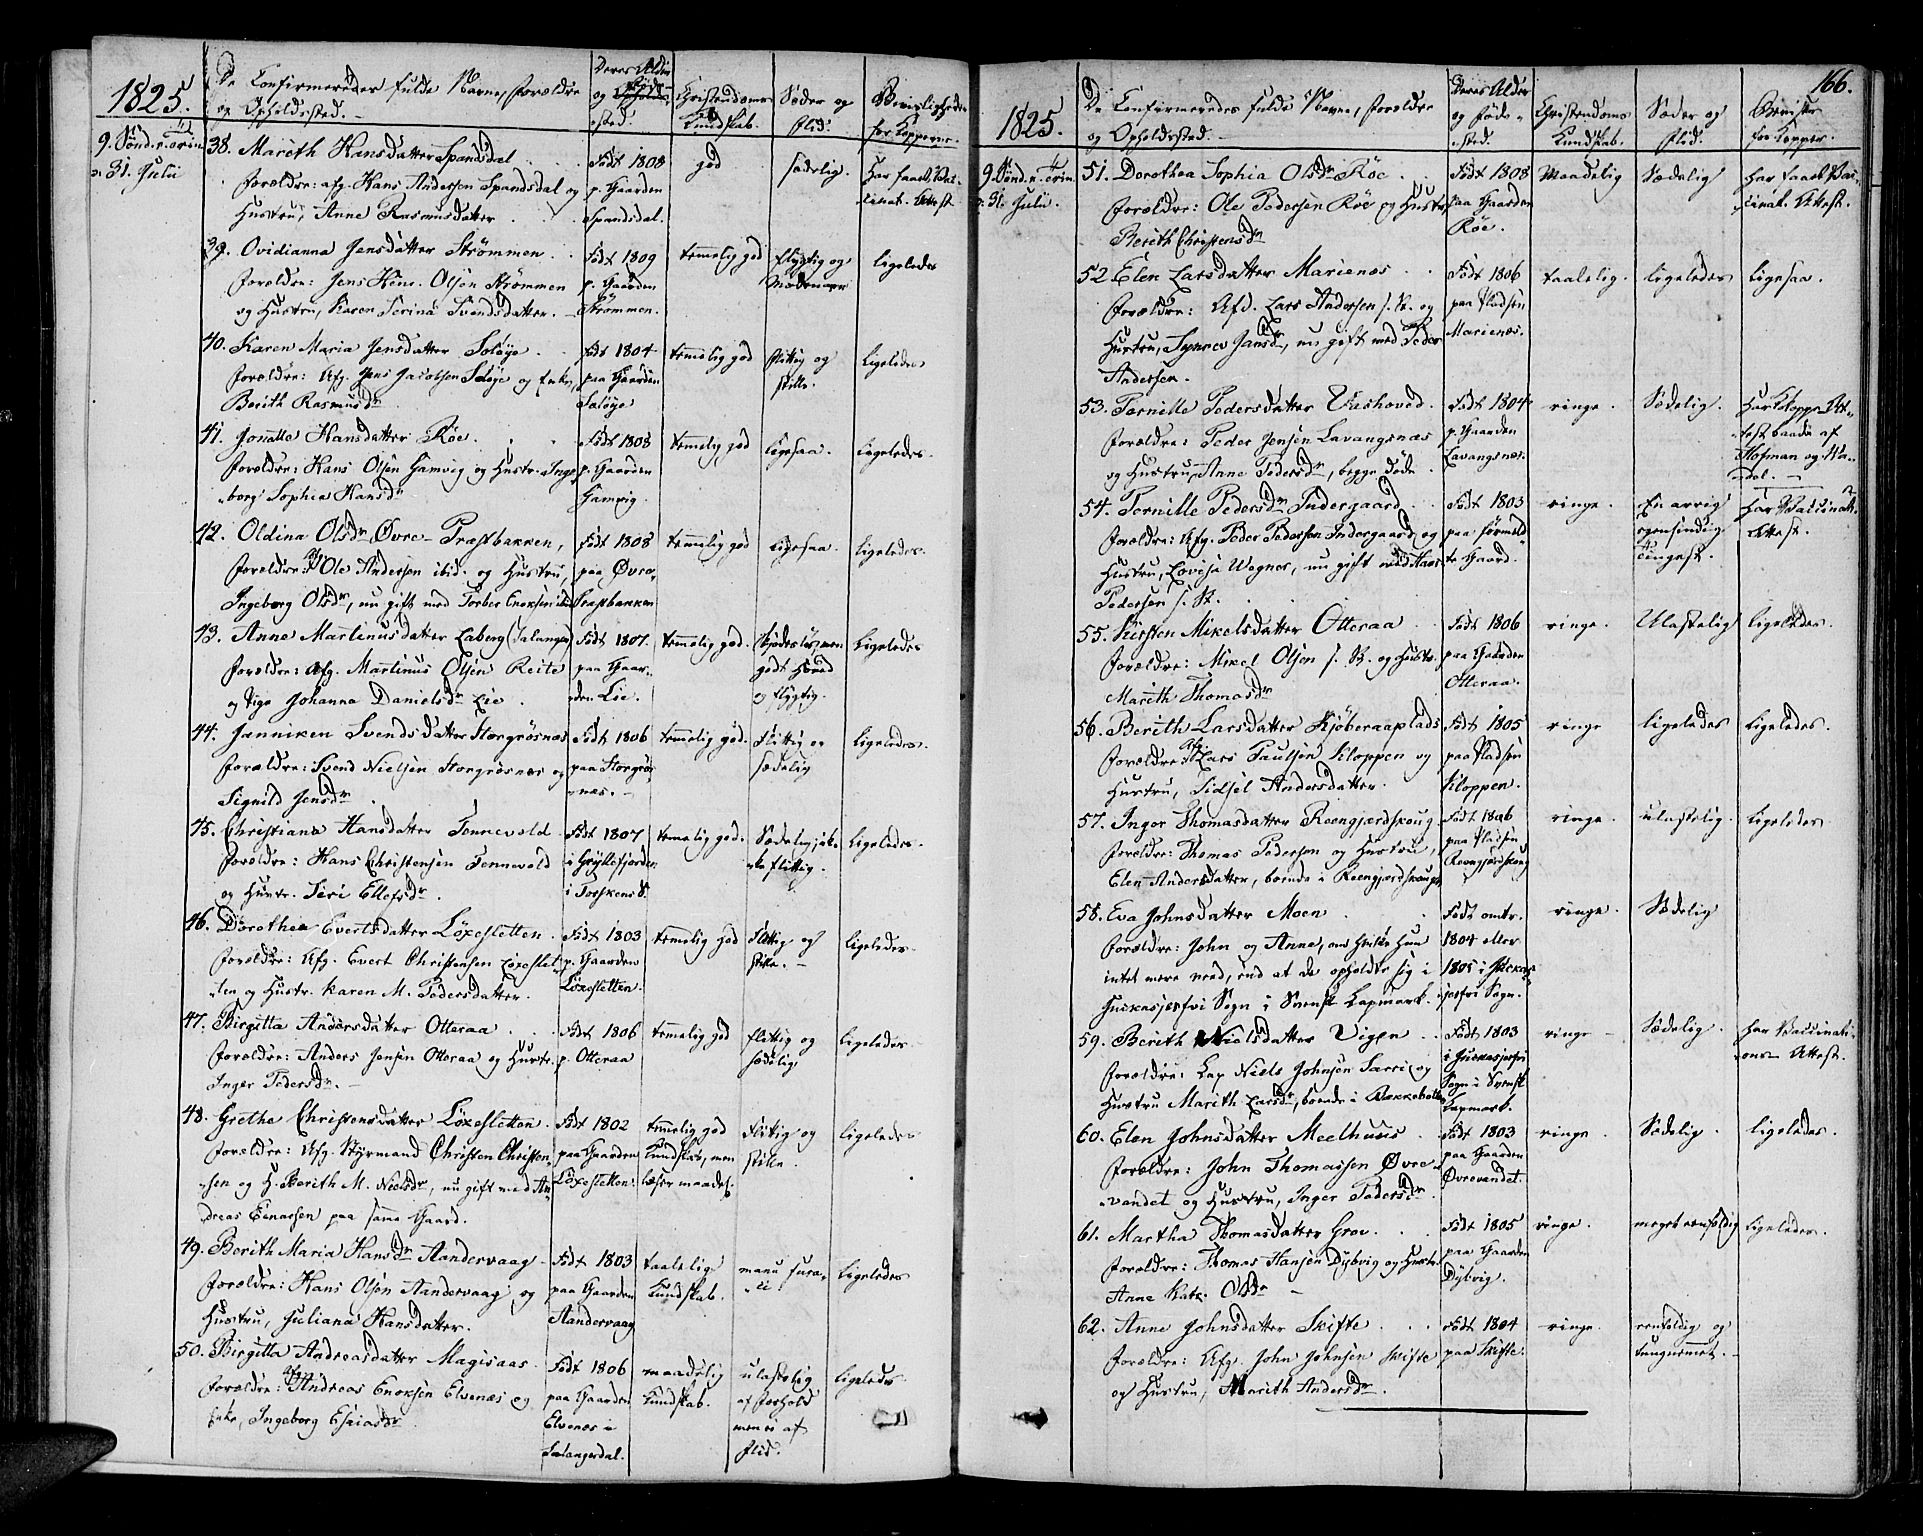 1825.
De Confirmeredes fulde Navne, Forældre
og Opholdssted.
Deres Alder
og Føde-
sted.
Christendoms
Kundskab.
Sæder og
Flid.
for Kopperne.
9. Sønd. e. Trin.
31. Julii
38. Marith Hansdatter Spansdal
Forældre: afg. Hans Andersen Spansdal og
Hustru, Anne Rasmusdatter
Født 1808
p. Gaarden
Spansdal.
god
sædelig.
har havt Vac-
cinat. Attest
39. Ovidianna Jensdatter Strømmen
Forældre: Jens Hine. Olsen Strømmen
og Hustru, Karen Serina Svendsdatter.
Født 1809
p. Gaarden
Strømmen.
temmelig god
flygtig og
ligeledes
40. Karen Maria Jensdatter Soløye
Forældre: Afg. Jens Jacobsen Soløye og Enke,
Berith Rasmusdr.
Født 1804
paa Gaarden
Soløye
temmelig god
flittig og
stille.
Ligeledes
41. Jonette Hansdatter Røe.
Forældre: Hans Olsen Gamvig og Hustr. Inge-
borg Sophia Hansdr.
Født 1808
p. Gaarden
Gamvig.
temmelig god
ligesaa.
ligeledes.
42. Oldina Olsdr. Øvre Præstbakken,
Forældre: Afg. Ole Andersen ibid. og Hustru,
Ingeborg Olsdr., nu gift med Torber Enoksen ibid.
Født 1808
paa Øvre
Præstbakken
temmelig god
ligesaa.
ligeledes.
43. Anne Martinusdatter Laberg (Salangen)
Forældre: Afg. Martinus Olsen Reite
og Pige Johanna Danielsdr. Lie.
Født 1807.
paa Gaar-
den Lie.
temmelig god.
godt Hoved
og flygtig.
Ligeledes
44. Janniken Svendsdatter Storgrøsnæs
Forældre: Svend Nielsen Storgrøsnæs og
Signild Jensdr.
Født 1806
paa Storgrøs-
næs.
temmelig god.
Flittig og
sædelig
Ligeledes.
45. Christiana Hansdatter Tennevold
Forældre: Hans Christensen Tennevold
og Hustr. Siri Ellefsdr.
Født 1807
i Gryllefjorden
i Torskens S.
temmelig god.
Sædelig, ik-
ke flittig.
Ligeledes.
46. Dorothea Evertsdatter Løxesletten.
Forældre: Afg. Evert Christensen Løxeslet-
ten og Hustr. Karen M. Pedersdatter.
Født 1803
p. Gaarden
Løxesletten.
temmelig god
Flittig og
stille.
ligeledes.
47. Birgitta Andersdatter Otteraa
Forældre: Anders Jensen Otteraa og Hustr.
Inger Pedersdr.
Født 1806
p. Otteraa
temmelig god
flittig og
sædelig
ligeledes.
48. Grethe Christensdatter Løxesletten.
Forældre: Afg. Styrmand Christen Christen-
sen og H. Berith M. Nielsdr., nu gift med An-
dreas Einarsen paa samme Gaard.
Født 1802
paa Gaarden
Løxesletten.
temmelig god
Kundskab, men
læser maadel.
Flittig og
stille.
ligeledes
49. Berith Maria Hansdr. Aandervaag
Forældre: Hans Olsen Aandervaag og
Hustru, Juliana Hansdatter.
Født 1803
paa Gaarden
Aandervaag
taalelig
Kundskab.
Ligeledes
50. Birgitta Andreasdatter Magisaas.
Forældre: Afg. Andreas Enoksen Elvenæs og
Enke, Ingeborg Esaiasdr.
Født 1806
paa Gaarden
Elvenæs i
Salangsdal.
maadelig
Kundskab.
ulastelig
af Forhold
men ei af
Flid.
ligeledes.
166.
1825.
De Confirmeredes fulde Navne, Forældre
og Opholdssted.
Deres Alder
og Føde-
sted.
Christendoms
Kundskab.
Sæder og
Flid.
Beviser
for Kopper.
9. Sønd. e. Trin.
31. Julii.
51. Dorothea Sophia Olsdr. Røe
Forældre: Ole Pedersen Røe og Hustru,
Berith Christensdr.
Født 1808
paa Gaarden
Røe.
Maadelig
Sædelig
har havt Vac-
cinat. Attest.
52. Elen Larsdatter Marienæs
Forældre: Afd. Lars Andersen s. St. og
Hustru, Synnev Jansdr., nu gift med Peder
Andersen.
Født 1806
paa Pladsen
Marienæs.
taalelig.
ligeledes
Ligesaa.
53. Pernille Pedersdatter Vashoved.
Forældre: Peder Jensen Lavangsnæs
og Hustru, Anne Pedersdr., begge døde.
Født 1804
p. Gaarden
Lavangsnæs.
ringe.
Sædelig.
Har Koppe At-
test baade af
Hofman og Wa-
del.
54. Pernille Pedersdr. Indergaard
Forældre: Afg. Peder Pedersen Indergaard og
Hustru, Lovisa Wagner, nu gift med Hans
Pedersen s. St.
Født 1803
paa formeld-
te Gaard.
ringe.
En arrig
egensindig
Tingest.
har Vaccinat.
Attest.
55. Kirsten Mikelsdatter Otteraa
Forældre: Mikel Olsen s. St. og Hustr.
Marith Thomasdr.
Født 1806
paa Gaarden
Otteraa.
ringe.
Ulastelig
ligeledes.
56. Berith Larsdatter Kjøberaaplads
Forældre: Afg. Lars Paulsen Kloppen og
Hustru, Sidsel Andersdatter.
Født 1805
paa Pladsen
Kloppen.
ringe
ligeledes
ligeledes.
57. Inger Thomasdatter Reengjærdskoug
Forældre: Thomas Pedersen og Hustru,
Elen Andersdatter, boende i Reengjærdskoug.
Født 1806
paa Pladsen
Reengjærdskoug
ringe.
ulastelig.
Ligeledes.
58. Eva Johnsdatter Moen
Forældre: John og Anne, om hvilke hun
intet mere veed, end at de opholder sig i
Juckasjerfvi Sogn i Svensk Lapmark.
Født omtr.
1804 eller
1805 i Juckas-
jerfvi Sogn.
ringe.
Sædelig
59. Berith Nielsdatter Vigen
Forældre: Lap Niels Johnsen Sarri og
Hustru Marith Larsdr., boende i Bækkebotten
Født 1803
i Juckasjerfvi
Sogn i Svensk
Lapmark.
ringe
Sædelig.
har Vaccinati-
ons-Attest.
60. Elen Johnsdatter Meelhuus
Forældre: John Thomassen Øvre-
vandet og Hustru, Inger Pedersdr.
Født 1803
paa Gaarden
Øvrevandet.
ringe.
Sædelig.
ligeledes.
61. Martha Thomasdatter Grov
Forældre: Thomas Hansen Dybvig og Hustr.
Anne Kat. Olsdr.
Født 1805
paa Gaarden
Dybvig.
ringe.
meget eenfoldig
ligeledes.
62. Anne Johnsdatter Skifte
Forældre: Afg. John Johnsen Skifte
og Hustru, Marith Andersdr.
Født 1804
paa Skifte.
ringe.
eenfoldig og
tungnemmet.